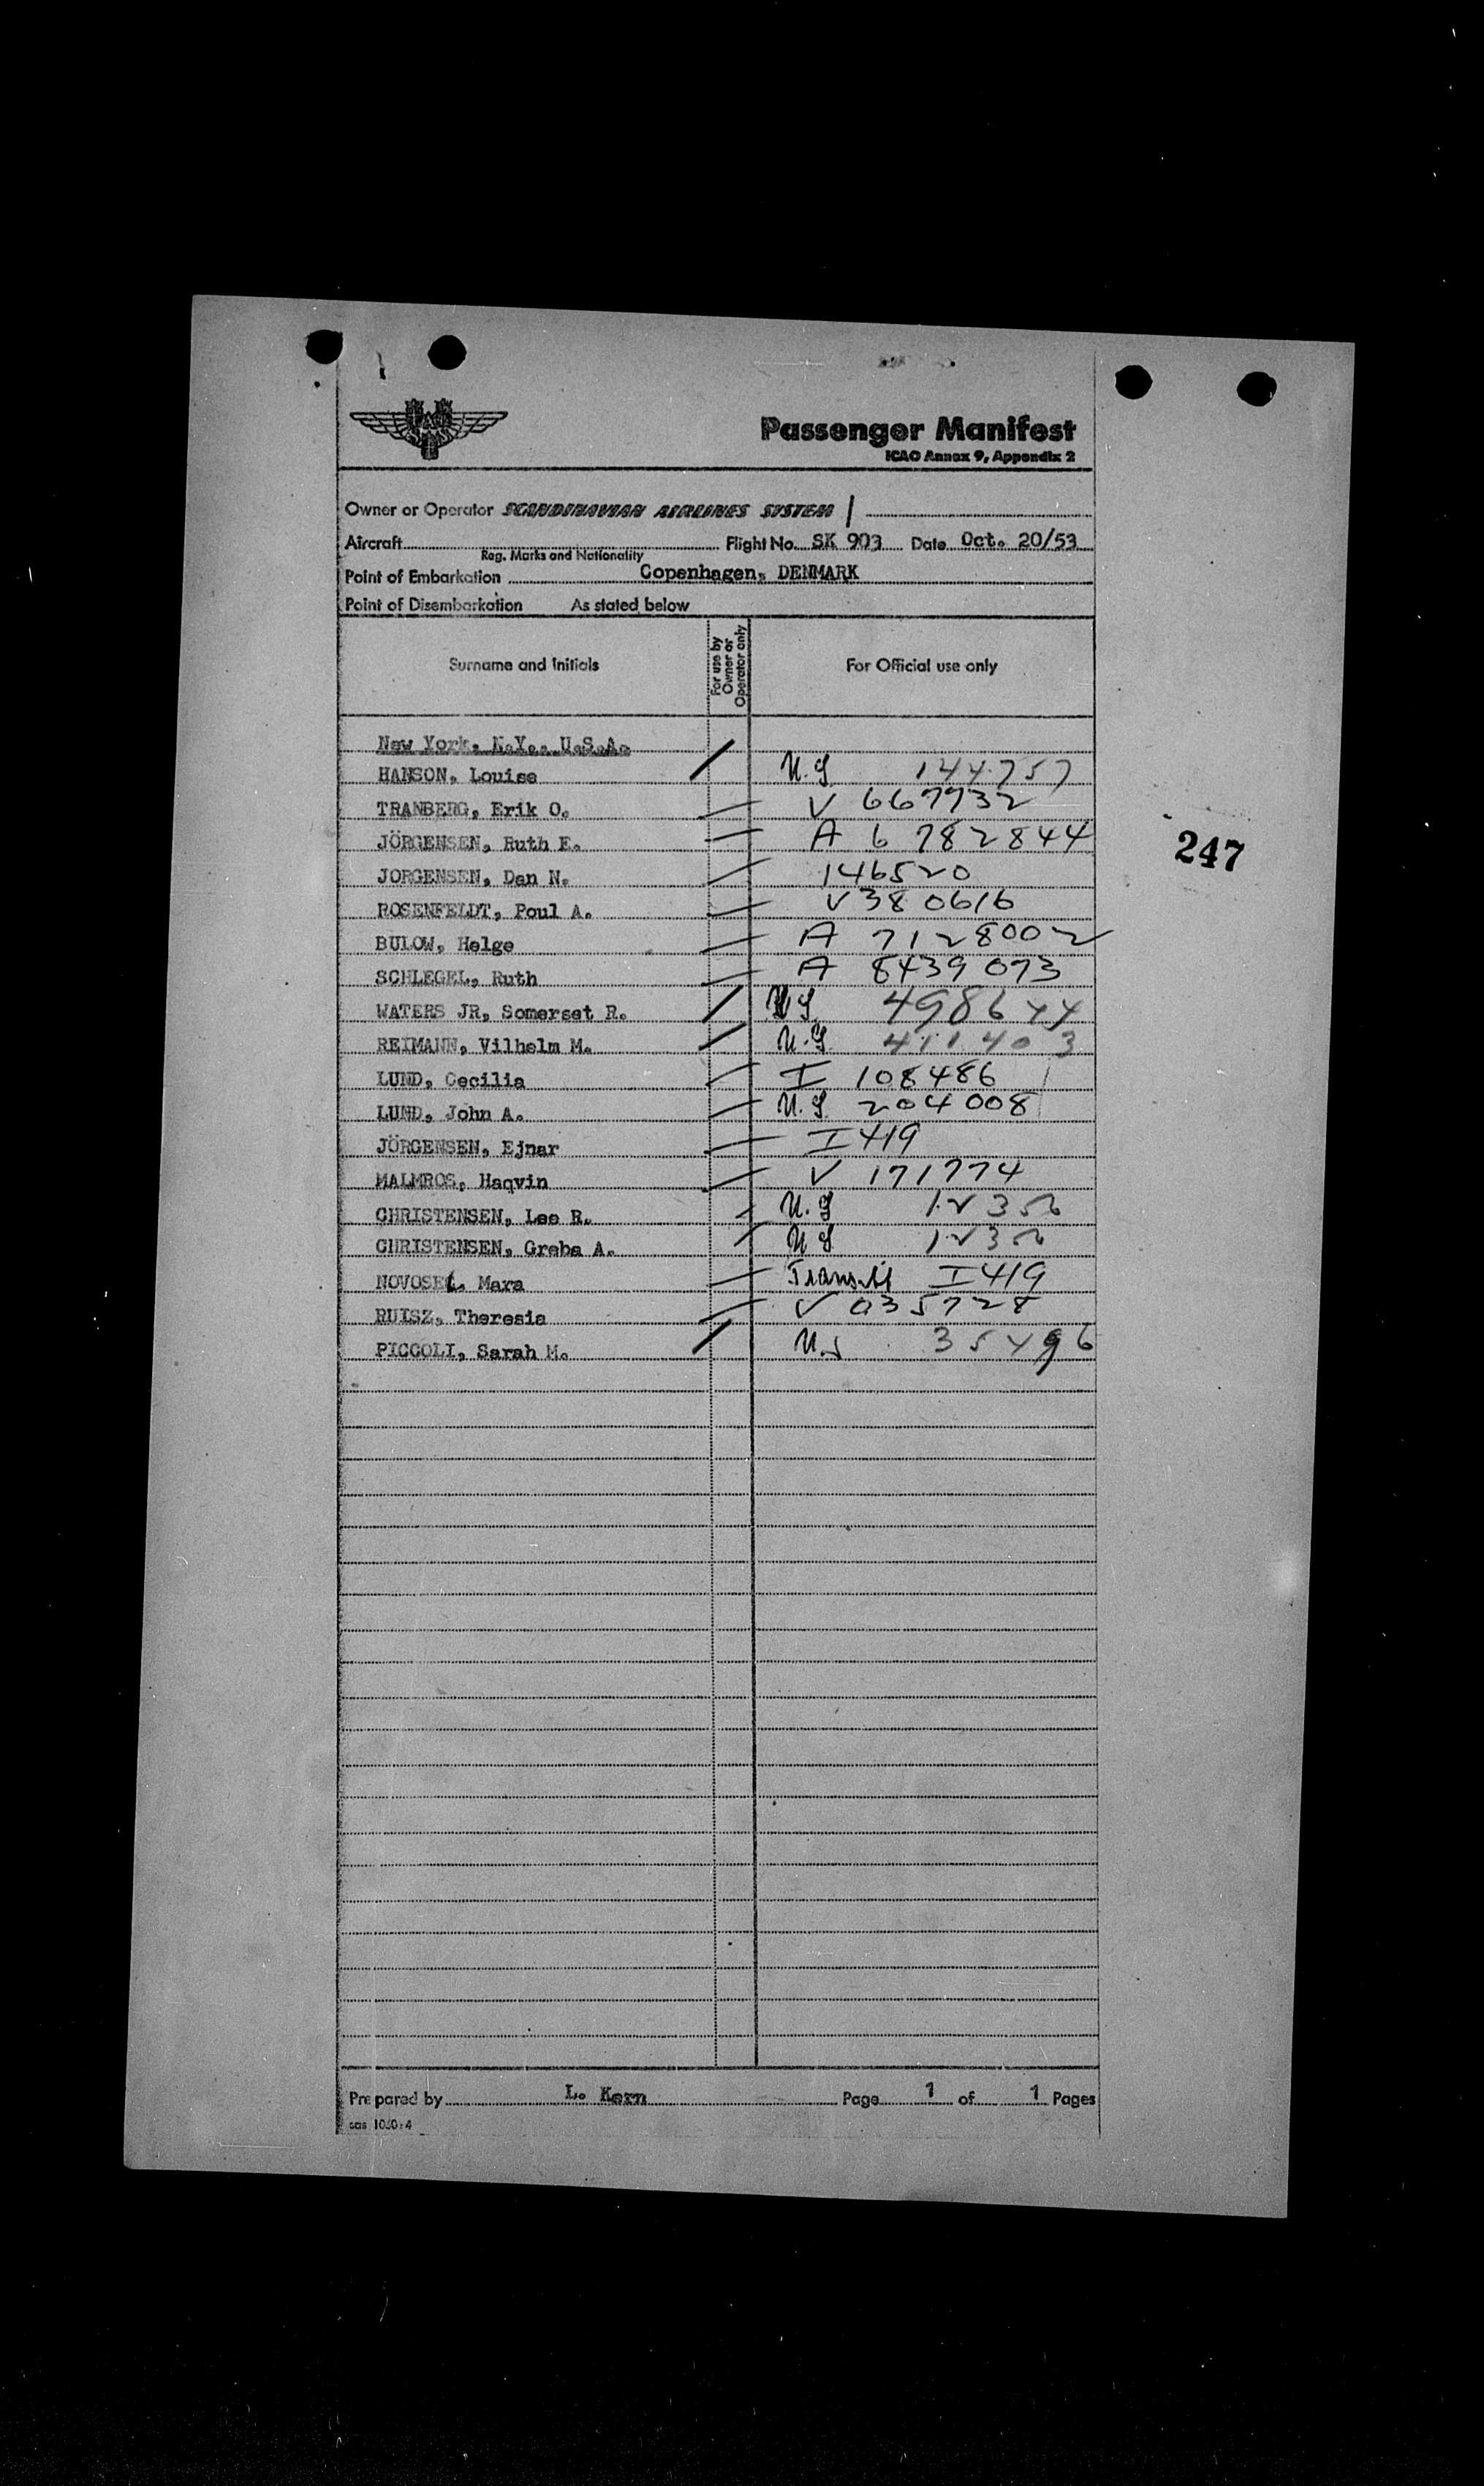 Passenger Manifest
ICAO Annex 9, Appendix 2
Owner or Operator SCANDINAVIAN AIRLINES SYSTEM
Aircraft Flight No. SK 903 Date Oct. 20/53
Reg. Marks and Nationality
Point of Embarkation Copenhagen, DENMARK
Point of Disembarkation As stated below
Surname and Initials For use by Owner or Operator only For Official use only
New York, N.Y., U.S.A.
HANSON, Louise U.S 144757
TRANBERG, Erik O. V 667732
JÖRGENSEN, Ruth E. A 6 782844
247
JORGENSEN, Dan N. 146520
ROSENFELDT, Poul A. V 380616
BULOW, Helge A 7128002
SCHLEGEL, Ruth A 8439073
WATERS JR, Somerset R. US 498644
REIMANN, Vilhelm M. U.S 411403
LUND, Cecilia I 108486
LUND, John A. U.S. 204008
JÖRGENSEN, Ejnar I 419
MALMROS, Haqvin V 171774
CHRISTENSEN, Lee R. U.S
CHRISTENSEN, Greba A. US
NOVOSEL, Mara Transit I 419
RUISZ, Theresia V 035728
PICCOLI, Sarah M. U.S 35496
Prepared by L. Kern Page 1 of 1 Pages